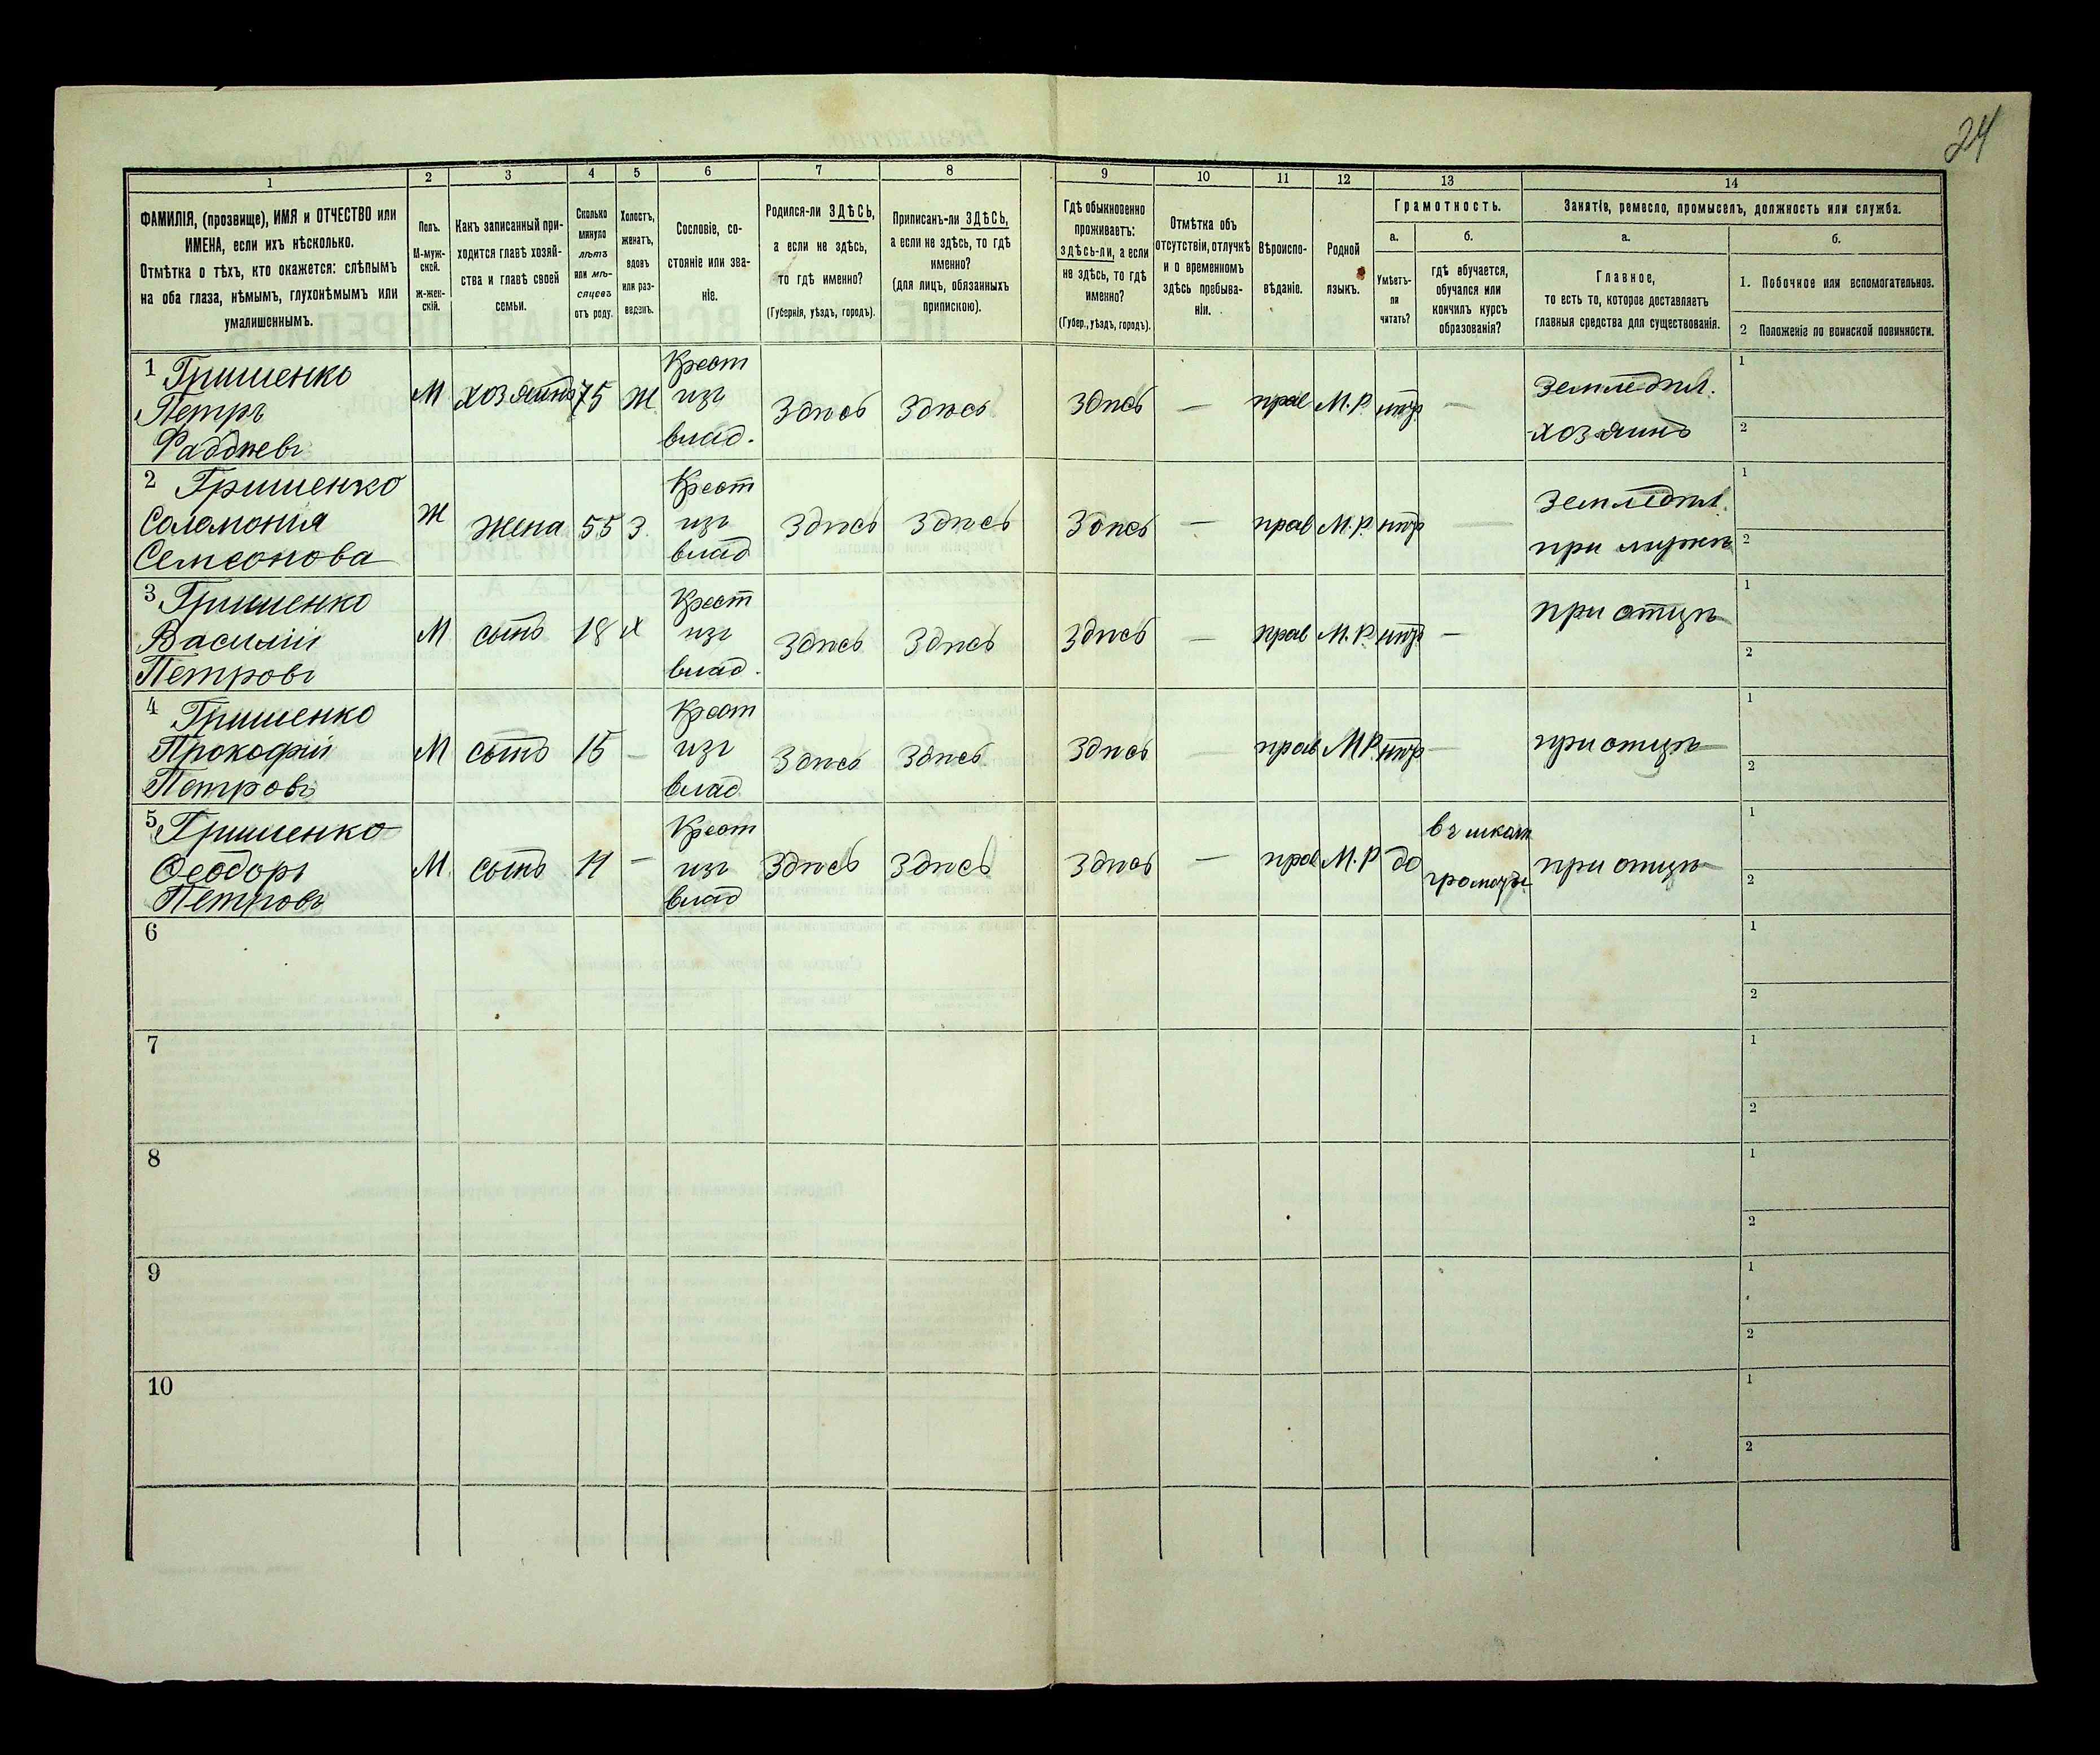 24
1 2 3 4 5 6 7 8 9 10 11 12 13 14
ФАМИЛІЯ, (прозвище), ИМЯ и ОТЧЕСТВО или
ИМЕНА, если ихъ нѣсколько.
Отмѣтка о тѣхъ, кто окажется: слѣпымъ
на оба глаза, нѣмымъ, глухонѣмымъ или
умалишеннымъ.
Полъ.
М-муж-
ской.
Ж-жен-
скій.
Какъ записанный при-
ходится главѣ хозяй-
ства и главѣ своей
семьи.
Сколько
минуло
лѣтъ
или мѣ-
сяцевъ
отъ роду.
Холостъ,
женатъ,
вдовъ
или раз-
веденъ.
Сословіе, со-
стояніе или зва-
ніе.
Родился-ли ЗДѢСЬ,
а если не здѣсь,
то гдѣ именно?
(Губернія, уѣздъ, городъ).
Приписанъ-ли ЗДѢСЬ,
а если не здѣсь, то гдѣ
именно?
(для лицъ, обязанныхъ
припискою).
Гдѣ обыкновенно
проживаетъ:
ЗДѢСЬ-ЛИ, а если
не здѣсь, то гдѣ
именно?
(Губер., уѣздъ, городъ).
Отмѣтка объ
отсутствіи, отлучкѣ
и о временномъ
здѣсь пребыва-
ніи.
Вѣроиспо-
вѣданіе.
Родной
языкъ.
Грамотность.
а.
Умѣетъ-
ли
читать?
б.
гдѣ обучается,
обучался или
кончилъ курсъ
образованія?
Занятіе, ремесло, промыселъ, должность или служба.
а.
Главное,
то есть то, которое доставляетъ
главныя средства для существованія.
б.
1. Побочное или вспомогательное.
2 Положеніе по воинской повинности.
1 Гришенко
Петръ
Фаддѣевъ
М хозяинъ 75 Ж
Крест
изъ
влад.
Здѣсь Здѣсь Здѣсь — прав М.Р. нѣтъ —
Земледѣл.
хозяинъ
1
2
2 Гришенко
Соломонія
Семсонова
Ж жена 55 З.
Крест
изъ
влад
Здѣсь Здѣсь Здѣсь — прав М.Р. нѣтъ —
Земледѣл.
при мужѣ
1
2
3 Гришенко
Василій
Петровъ
М сынъ 18 х
Крест
изъ
влад.
Здѣсь Здѣсь Здѣсь — прав М.Р. нѣтъ —
при отцѣ
1
2
4 Гришенко
Прокофій
Петровъ
М сынъ 15 —
Крест
изъ
влад
Здѣсь Здѣсь Здѣсь — прав М.Р. нѣтъ —
при отцѣ
1
2
5 Гришенко
Ѳеодоръ
Петровъ
М. сынъ 11 —
Крест
изъ
влад
Здѣсь Здѣсь Здѣсь — прав М.Р. да
въ школ
грамоты
при отцѣ
1
2
6
1
2
7
1
2
8
1
2
9
1
2
10
1
2